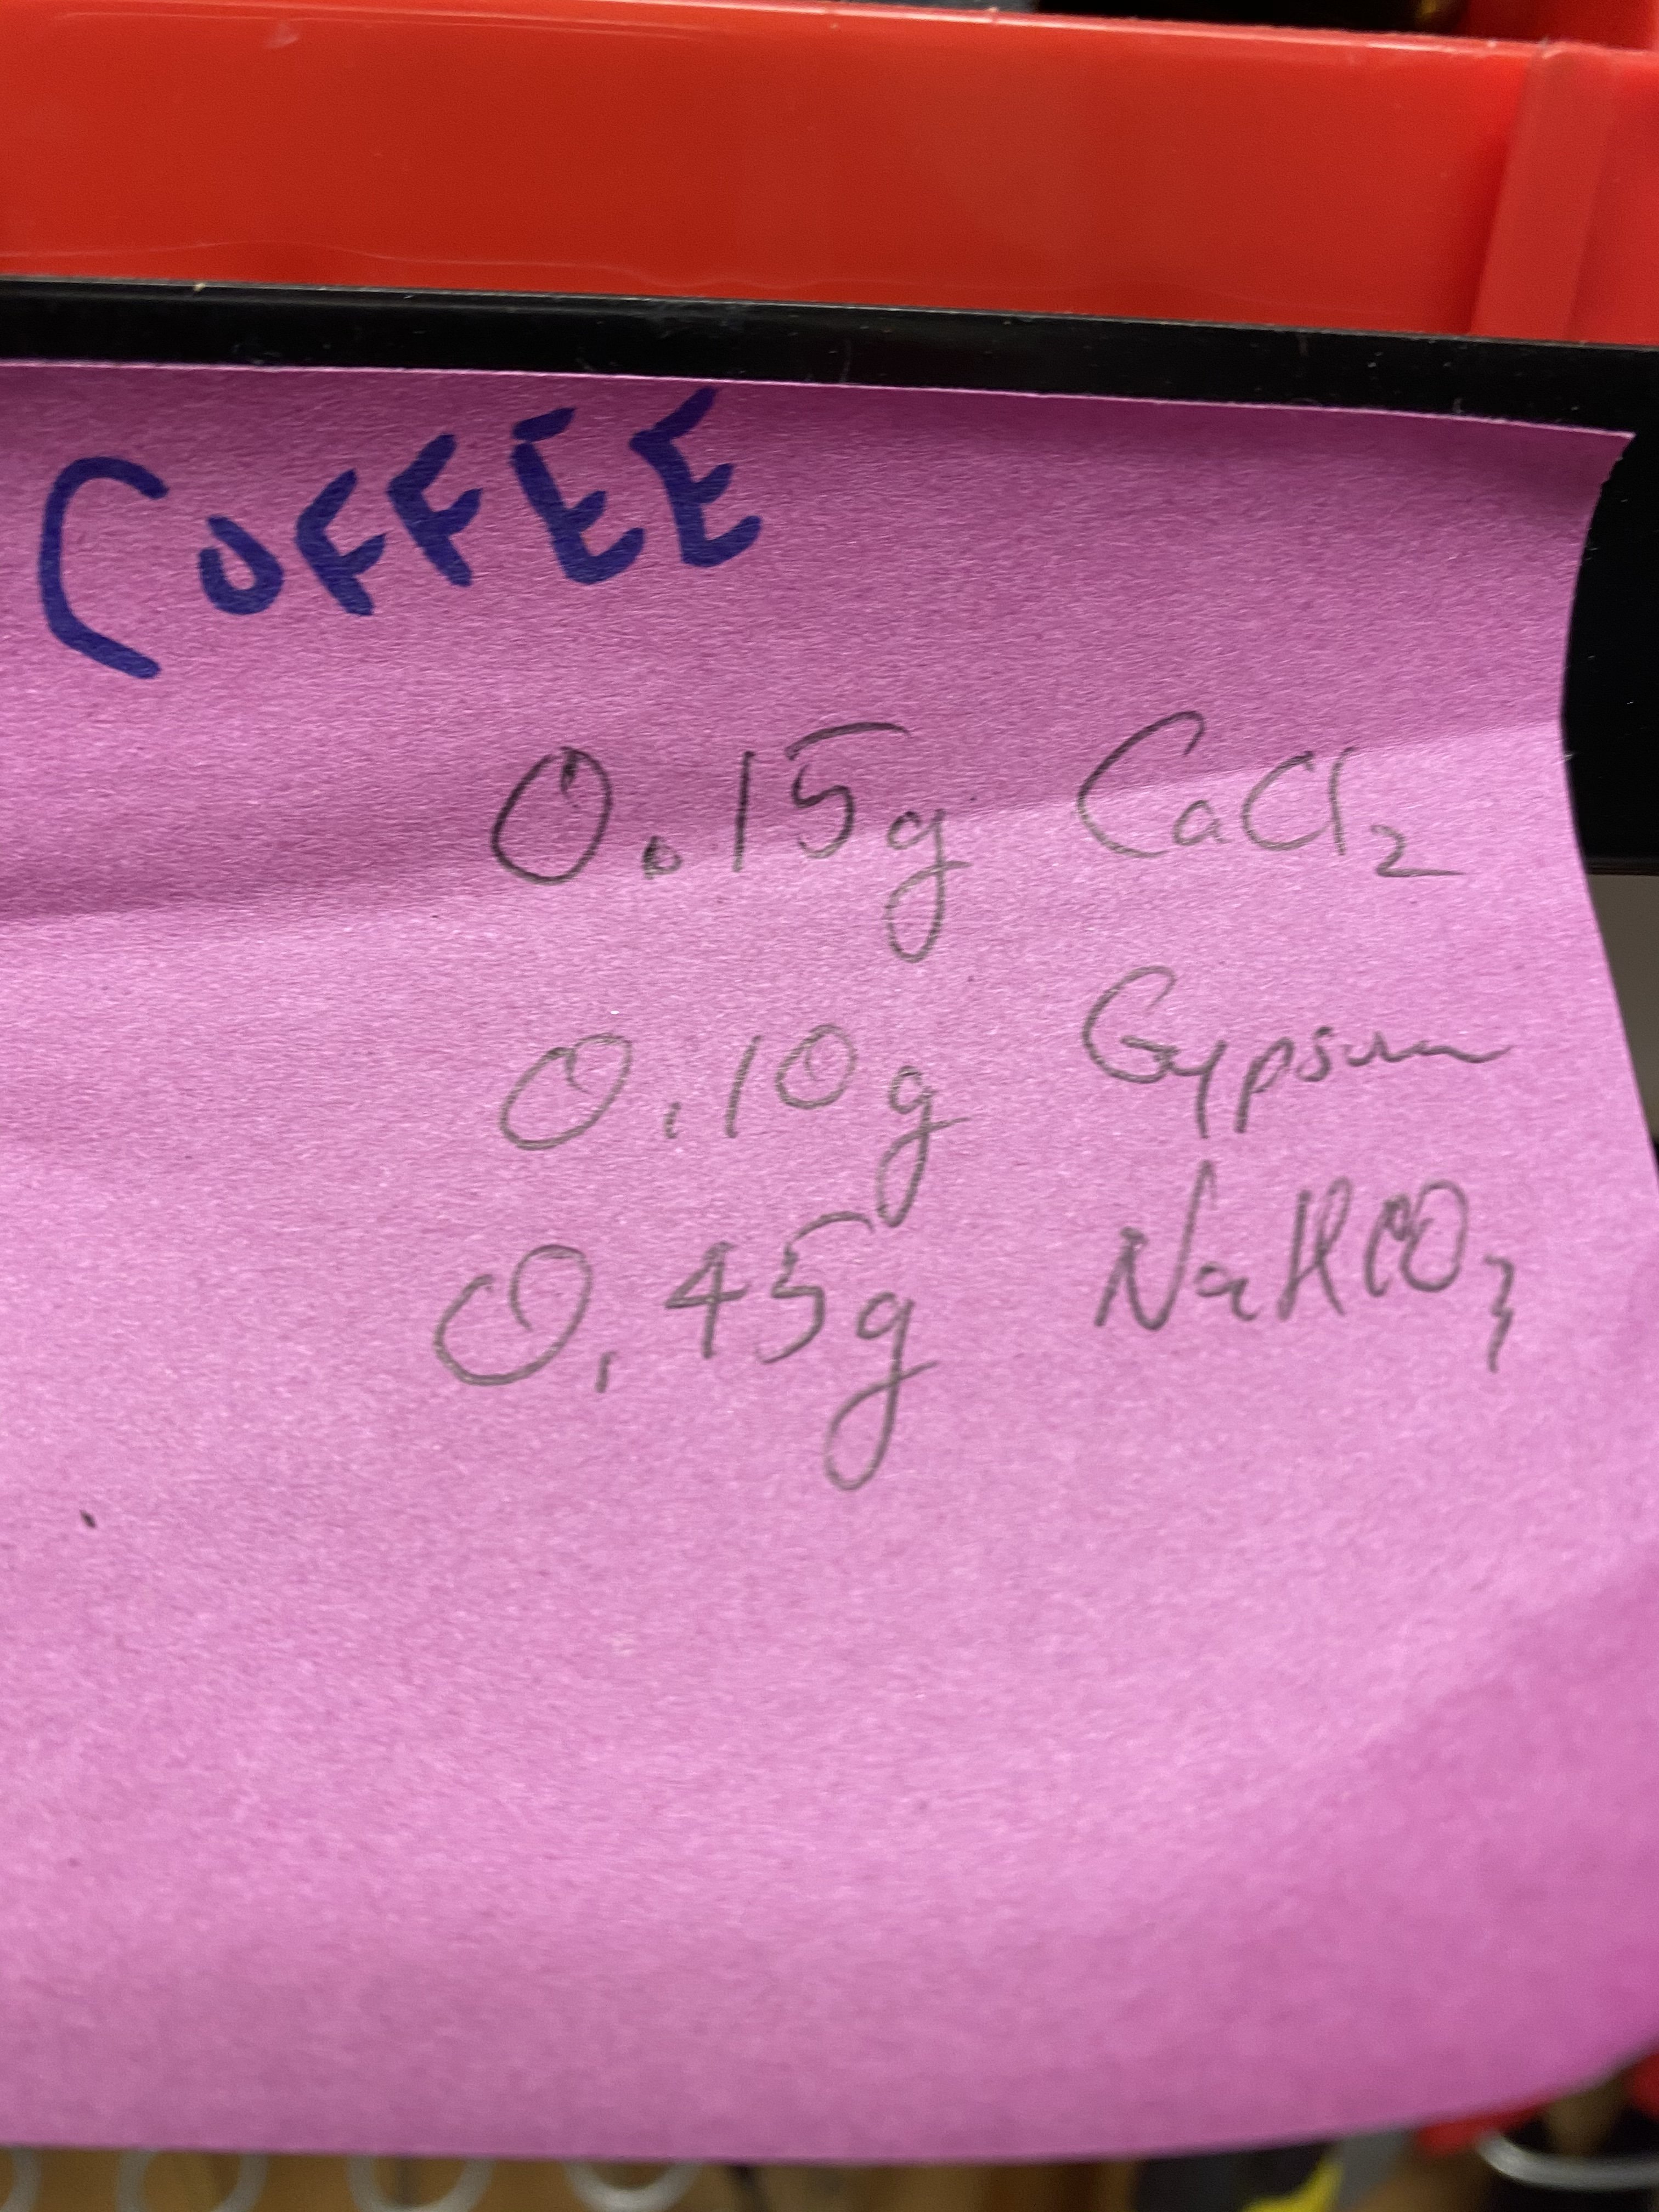 COFFEE
0.15g CaCl₂
0.10g Gypsum
0.45g NaHCO₃